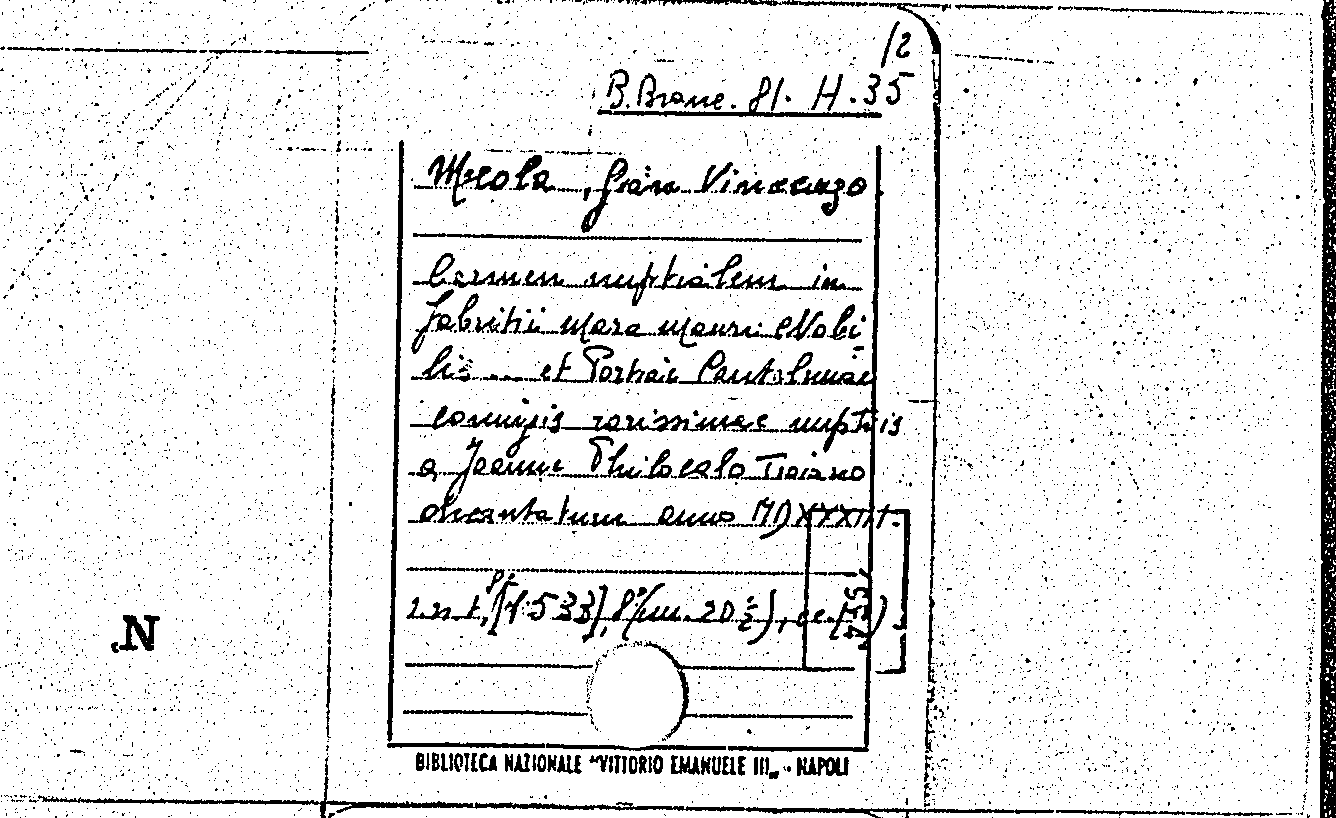 12
B. Branc. 81. H. 35
Meola, Gian Vincenzo
Carmen nuptialem in
Fabritii Mara Mauri Nobi-
lis ... et Portiae Cantelmae
coniugis rarissimae nuptiis
a Joanne Philocalo Troiano
decantatum anno MDXXXIII.
s.n.t., [1533], 8° (cm. 20 ½), cc.
N.
BIBLIOTECA NAZIONALE "VITTORIO EMANUELE III" - NAPOLI